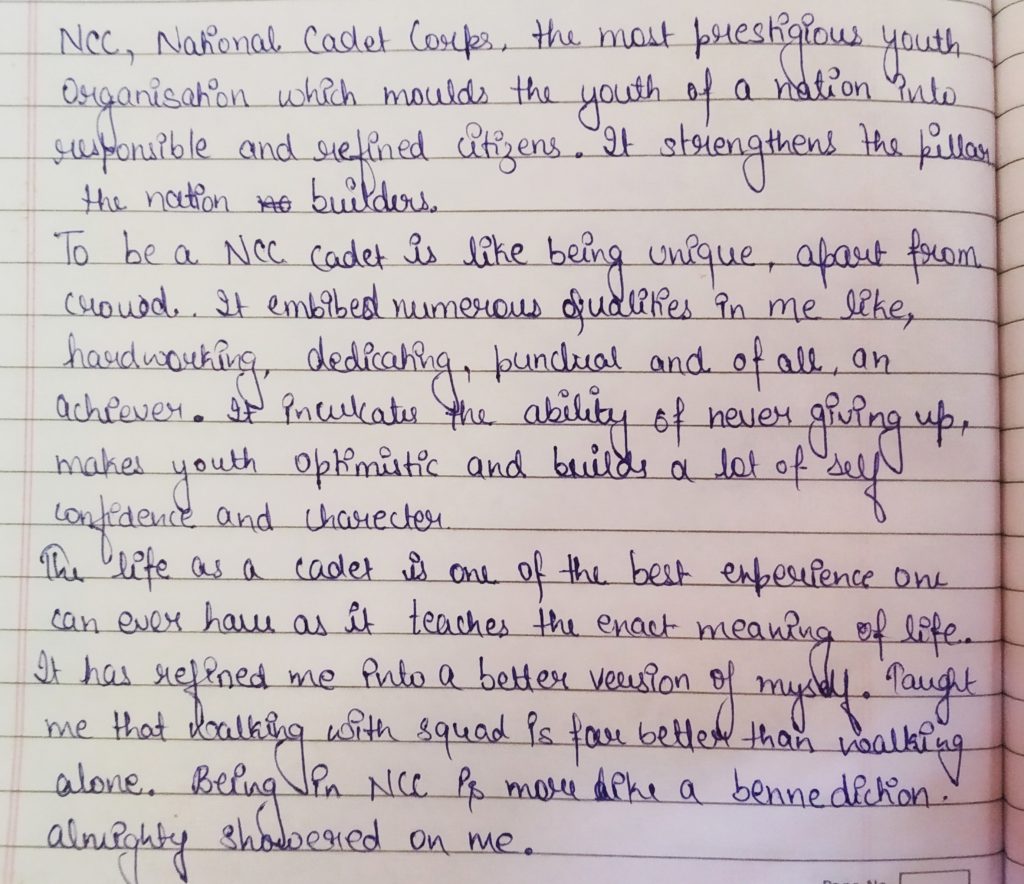 NCC, National Cadet Corps, the most prestigious youth
Organisation which moulds the youth of a nation into
responsible and refined citizens. It strengthens the pillar
the nation builders.
To be a NCC cadet is like being unique, apart from
crowd. It embibed numerous qualities in me like,
hardworking, dedicating, punctual and of all, an
achiever. It inculcates the ability of never giving up,
makes youth optimistic and builds a lot of self
confidence and charecter.
The life as a cadet is one of the best experience one
can ever have as it teaches the exact meaning of life.
It has refined me into a better version of myself. Taught
me that walking with squad is far better than walking
alone. Being in NCC is more like a bennediction.
almighty showered on me.